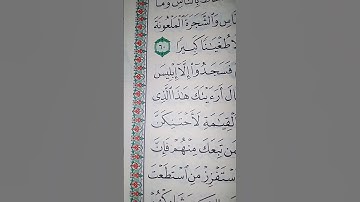 بِالنَّاسِ وَمَا
وَٱلشَّجَرَةَ ٱلْمَلْعُونَةَ
طُغْيَٰنًا كَبِيرًا ٦٠
فَسَجَدُوٓا۟ إِلَّآ إِبْلِيسَ
أَرَءَيْتَكَ هَٰذَا ٱلَّذِى
ٱلْقِيَٰمَةِ لَأَحْتَنِكَنَّ
تَبِعَكَ مِنْهُمْ فَإِنَّ
ٱسْتَفْزِزْ مَنِ ٱسْتَطَعْتَ